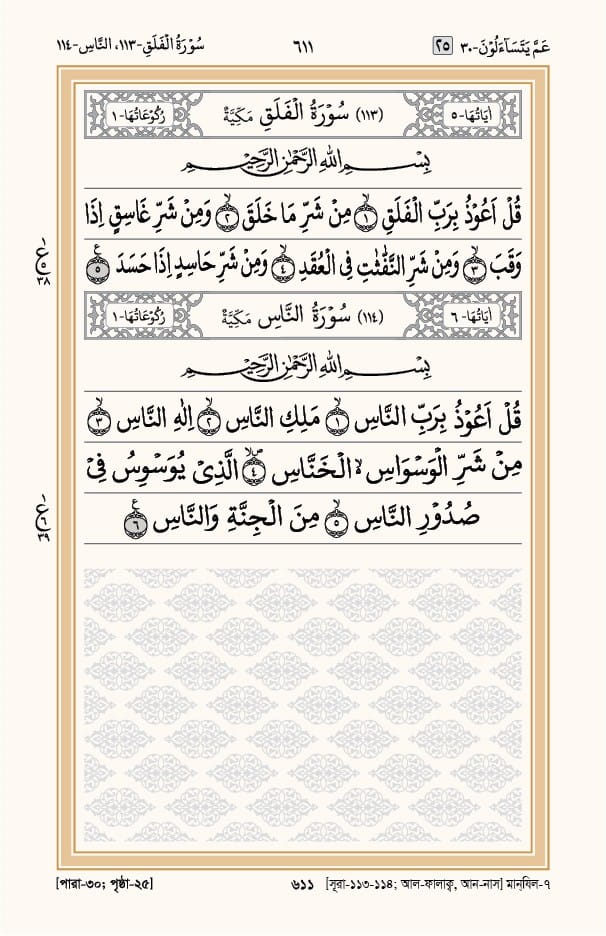 عَمَّ يَتَسَآءَلُوْنَ-٣٠ ٢٥ ٦١١ سُوْرَةُ الْفَلَقِ-١١٣، النَّاسِ-١١٤
اٰيَاتُهَا-٥ (١١٣) سُوْرَةُ الْفَلَقِ مَكِيَّةٌ رُكُوْعَاتُهَا-١
بِسْمِ اللهِ الرَّحْمٰنِ الرَّحِيْمِ
قُلْ اَعُوْذُ بِرَبِّ الْفَلَقِ ۙ١ مِنْ شَرِّ مَا خَلَقَ ۙ٢ وَمِنْ شَرِّ غَاسِقٍ اِذَا
وَقَبَ ۙ٣ وَمِنْ شَرِّ النَّفّٰثٰتِ فِى الْعُقَدِ ۙ٤ وَمِنْ شَرِّ حَاسِدٍ اِذَا حَسَدَ ٥ع
ع ٥ ٣٨
اٰيَاتُهَا-٦ (١١٤) سُوْرَةُ النَّاسِ مَكِيَّةٌ رُكُوْعَاتُهَا-١
بِسْمِ اللهِ الرَّحْمٰنِ الرَّحِيْمِ
قُلْ اَعُوْذُ بِرَبِّ النَّاسِ ۙ١ مَلِكِ النَّاسِ ۙ٢ اِلٰهِ النَّاسِ ۙ٣
مِنْ شَرِّ الْوَسْوَاسِ ۙ الْخَنَّاسِ ۪ۙ٤ الَّذِىْ يُوَسْوِسُ فِىْ
صُدُوْرِ النَّاسِ ۙ٥ مِنَ الْجِنَّةِ وَالنَّاسِ ٦ع
ع ٦ ٣٩
[পারা-৩০; পৃষ্ঠা-২৫] ৬১১ [সূরা-১১৩-১১৪; আল-ফালাক্ব, আন-নাস] মান্‌যিল-৭